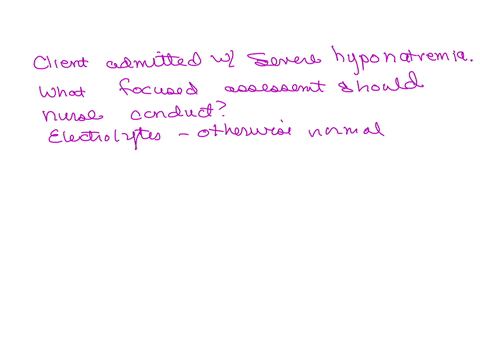 Client admitted w/ severe hyponatremia.
What focused assessemt should
nurse conduct?
Electrolytes - otherwise normal